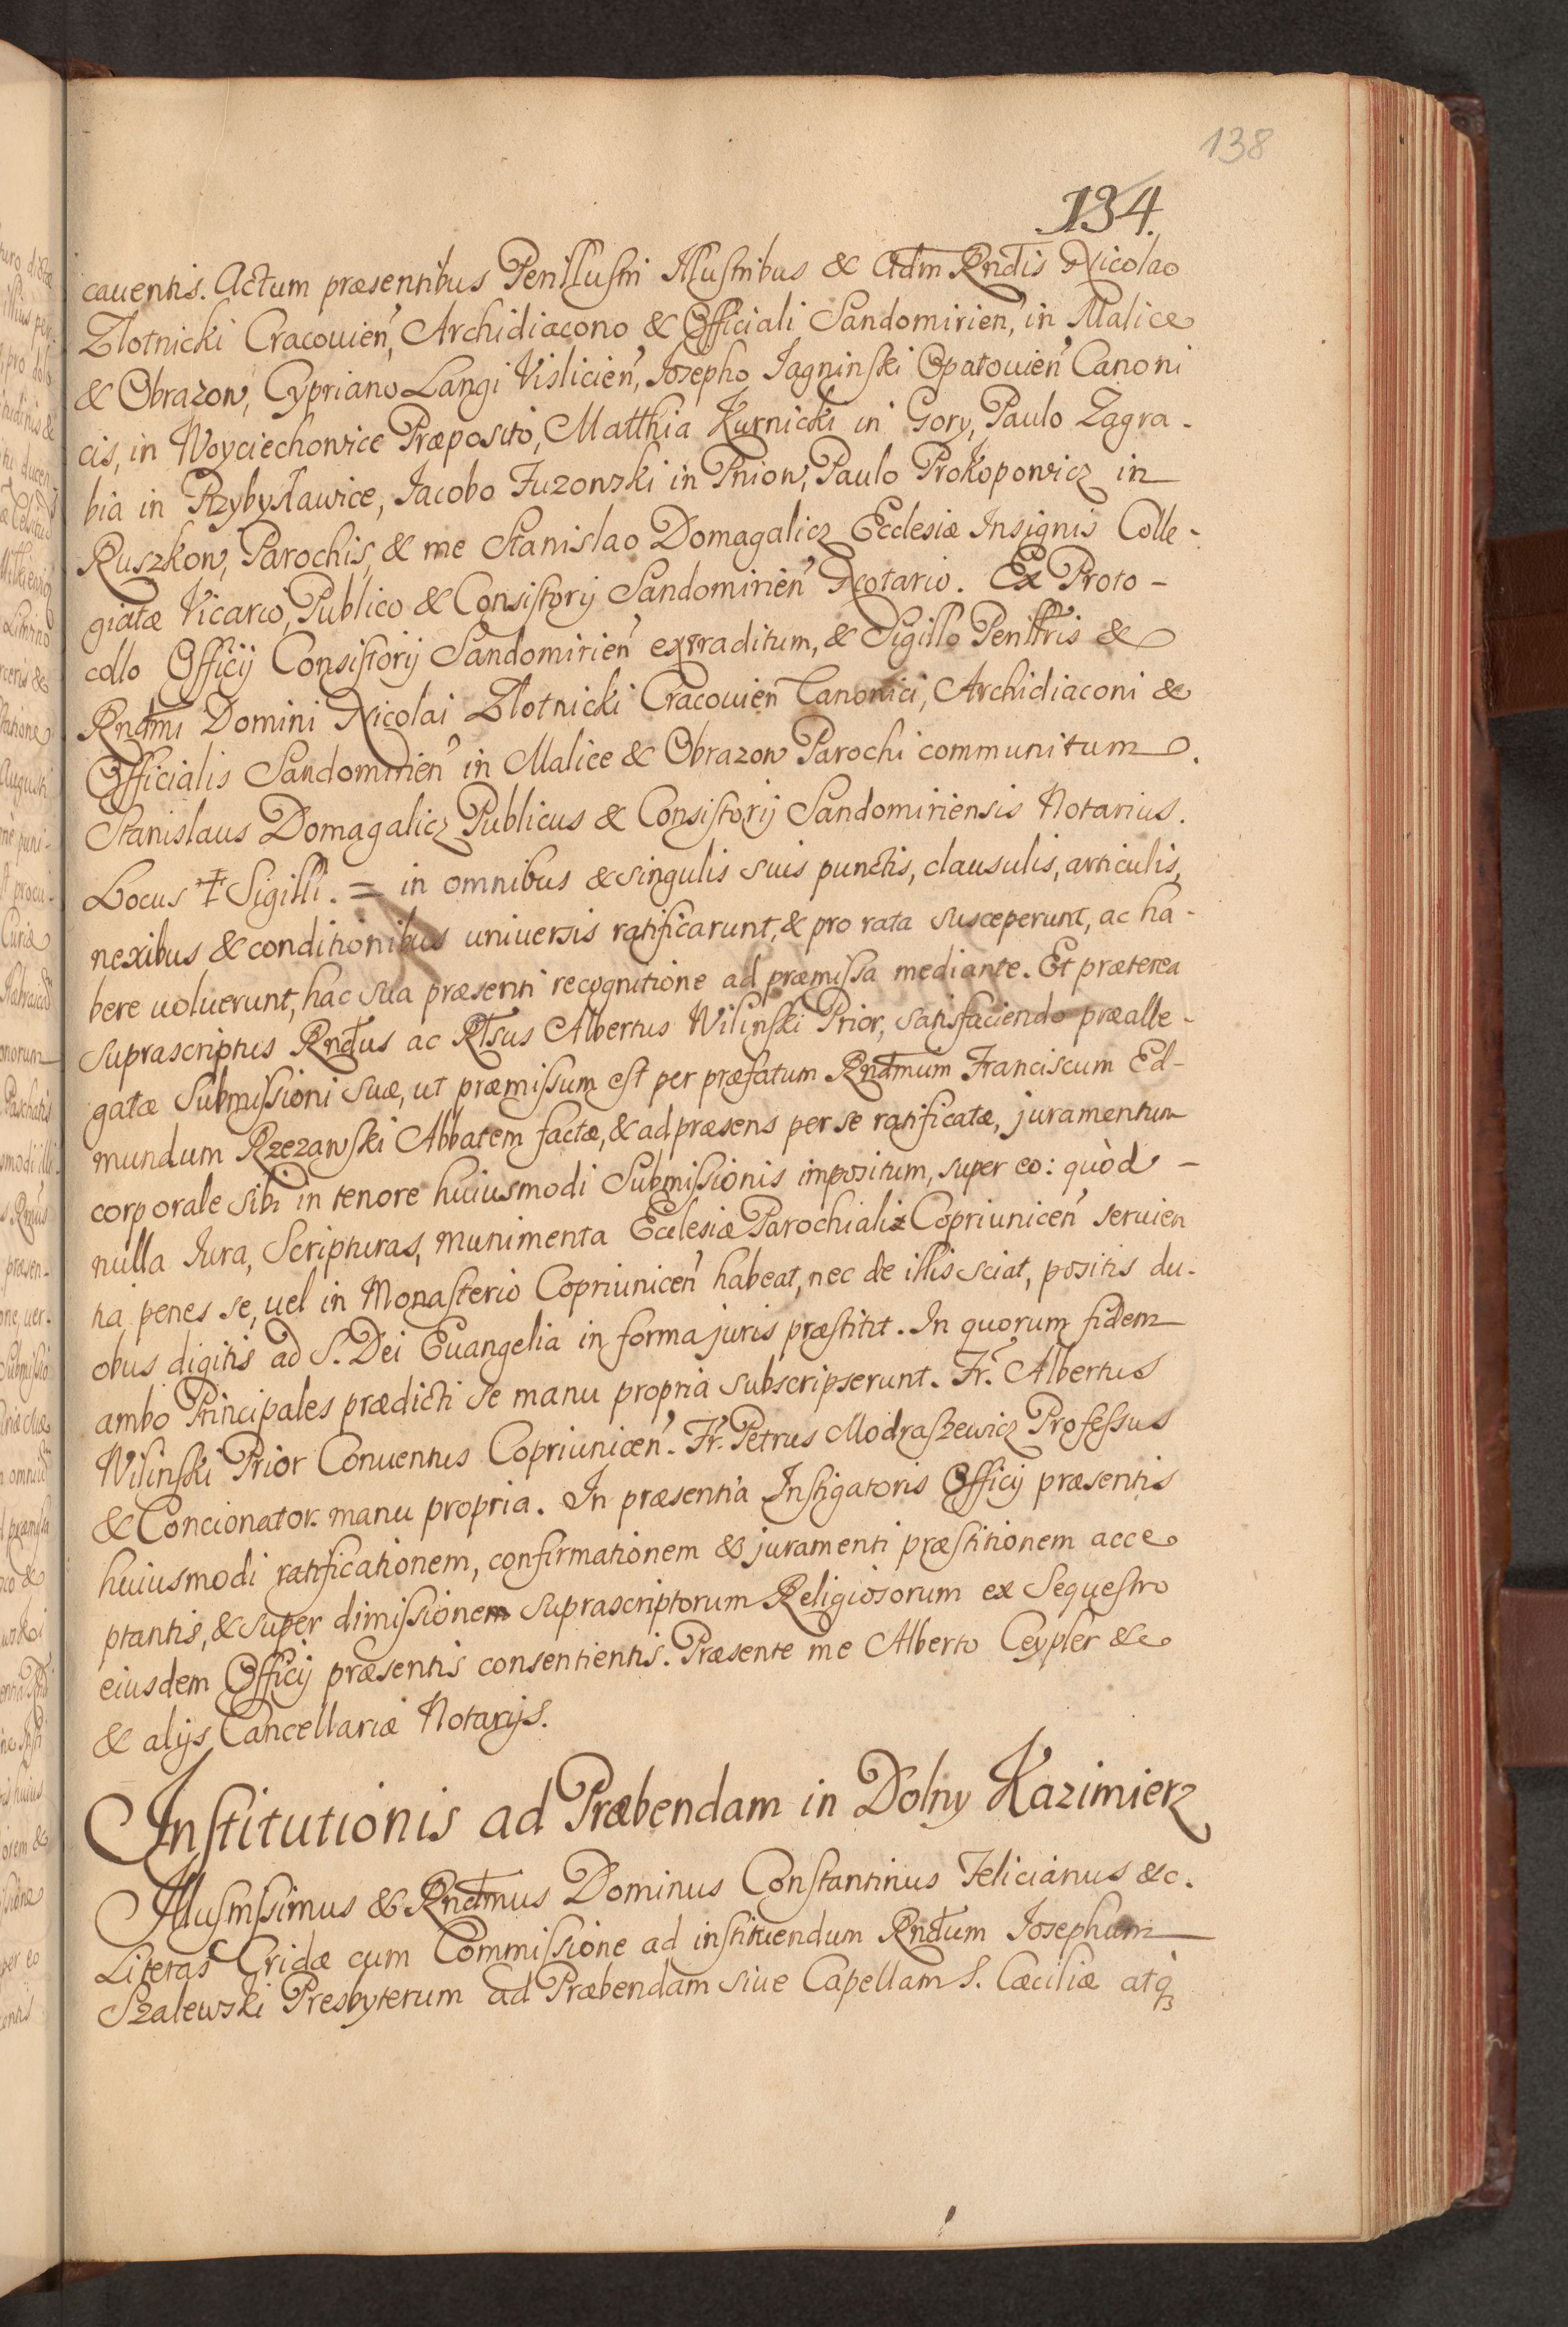 138
134.
cauentis. Actum præsentibus Perillustri Illustribus & Adm Rndis Nicolao
Zlotnicki Cracouien, Archidiacono & Officiali Sandomirien, in Malice
& Obrazow, Cypriano Langi Vislicien, Josepho Jagninski Opatouien Canoni
cis, in Woyciechowice Præposito, Matthia Kurnicki in Gory, Paulo Zagra-
bia in Przybysławice, Jacobo Fuzowski in Pniow, Paulo Prokopowicz in
Ruszkow, Parochis, & me Stanislao Domagalicz Ecclesiæ Insignis Colle-
giatæ Vicario, Publico & Consistorij Sandomirien Notario. Ex Proto-
collo Officij Consistorij Sandomirien extraditum, & Sigillo Perilltris &
Rndmi Domini Nicolai Zlotnicki Cracouien Canonici, Archidiaconi &
Officialis Sandomirien in Malice & Obrazow Parochi communitum.
Stanislaus Domagalicz Publicus & Consistorij Sandomiriensis Notarius.
Locus ‡ Sigilli. = in omnibus & singulis suis punctis, clausulis, articulis,
nexibus & conditionibus universis ratificarunt, & pro rata susceperunt, ac ha-
bere uoluerunt, hac sua præsenti recognitione ad præmissa mediante. Et præterea
suprascriptus Rndus ac Rlsus Albertus Wilinski Prior, satisfaciendo prælle-
gatæ Submissioni suæ, ut præmissum est per præfatum Rndmum Franciscum Ed-
mundum Rzezawski Abbatem factæ, & ad præsens per se ratificatæ, juramentum
corporale sibi in tenore huiusmodi Submissionis impositum, super eo: quòd -
nulla Jura, Scripturas, munimenta Ecclesiæ Parochialis Copriunicen seruien
tia penes se, uel in Monasterio Copriunicen habeat, nec de illis sciat, positis du-
obus digitis ad S. Dei Euangelia in forma juris præstitit. In quorum fidem
ambo Principales prædicti se manu propria subscripserunt. Fr. Albertus
Wilinski Prior Conuentus Copriunicen. Fr. Petrus Modraszewicz Professus
& Concionator manu propria. In præsentia Instigatoris Officij præsentis
huiusmodi ratificationem, confirmationem & juramenti præstitionem acce
ptantis, & super dimissionem suprascriptorum Religiosorum ex Sequestro
eiusdem Officij præsentis consentientis. Præsente me Alberto Ceypler &c
& alijs Cancellariæ Notarijs.
Institutionis ad Præbendam in Dolny Kazimierz
Illustrissimus & Rndmus Dominus Constantinus Felicianus &c.
Literas Cridæ cum Commissione ad instituendum Rndum Josephum
Szalewski Presbyterum ad Præbendam siue Capellam S. Cæciliæ atq3